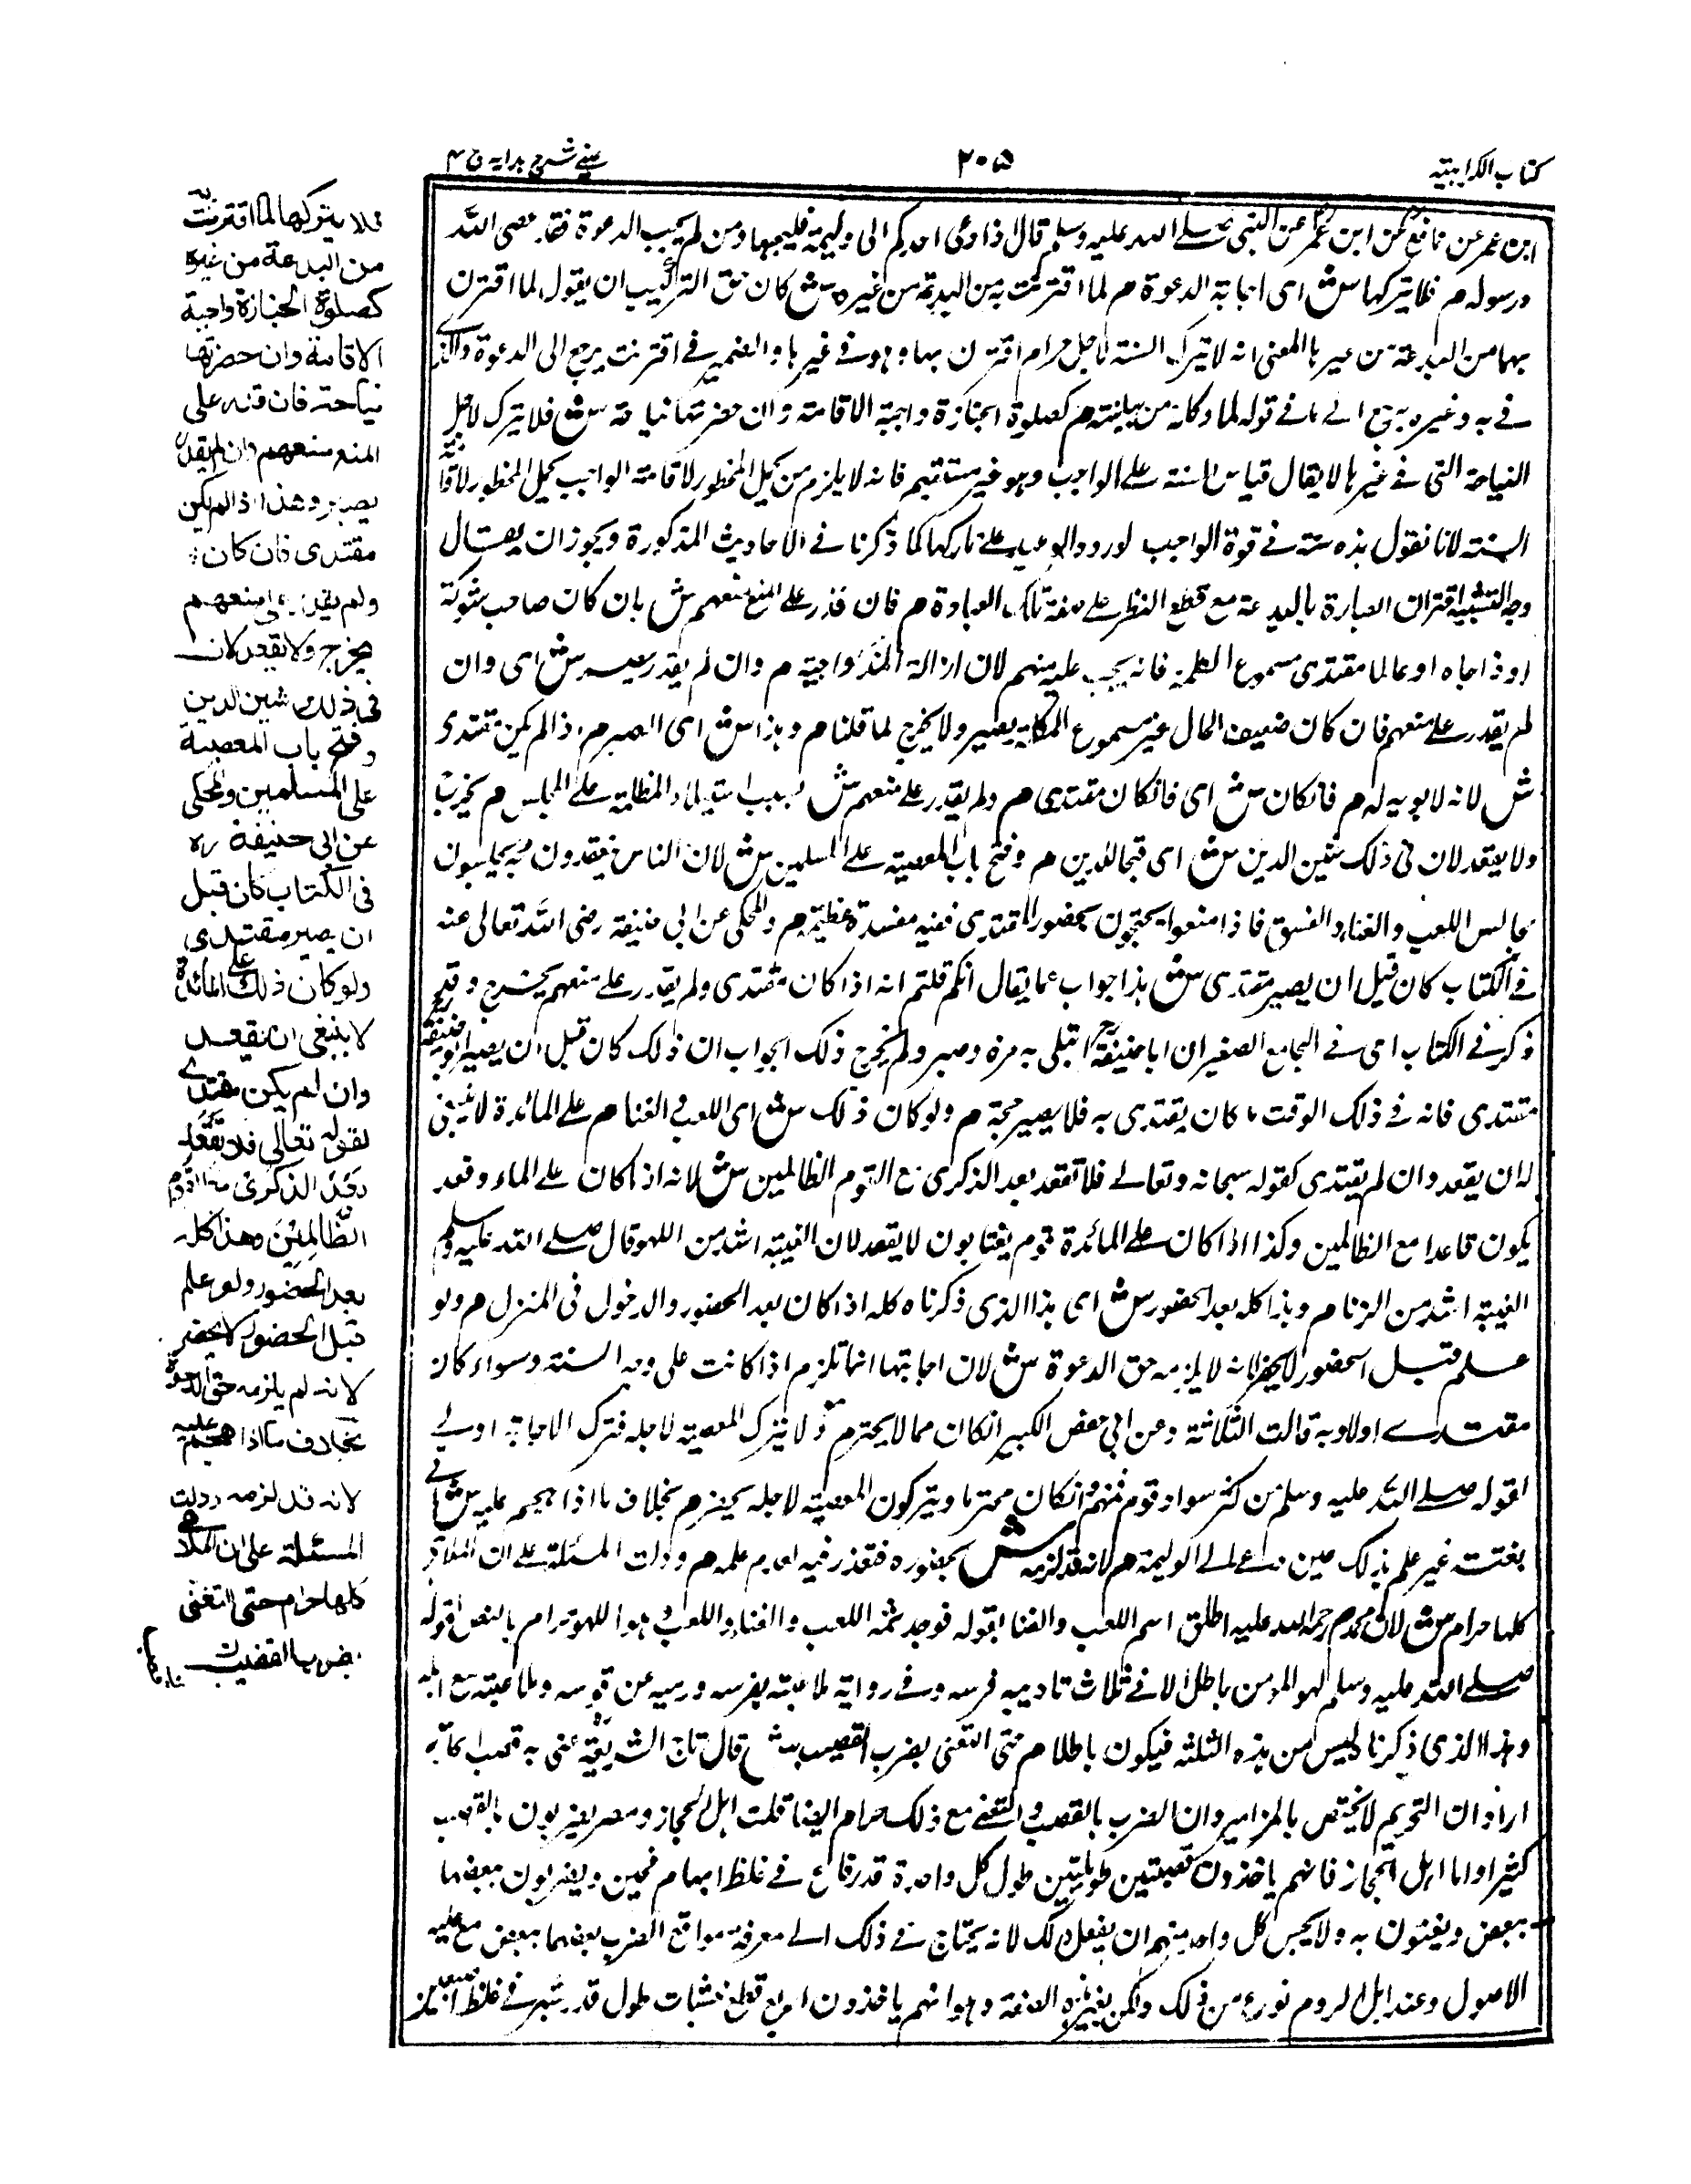 كتاب الكراہية
٢٠٥
عينے شرح ہدايہ ج ٤
ابن عمر عن نافع عن ابن عمر عن النبى صلے اللہ عليہ وسلم قال اذا دعى احدكم الى وليمة فليجبها ومن لم يجب الدعوة فقد عصى اللہ
ورسولہ م فلا يتركها ش اى اجابة الدعوة م لما اقترنت بہ من البدعة من غيره ش كان حق التركيب ان يقول لما اقترن
بها من البدعة من غيرها المعنى انہ لا يترك السنة لاجل حرام اقترن بها وہو فے غيرہا والضمير فے اقترنت يرجع الى الدعوة والذى
فے بہ وغيره يرجع الے ما فے قولہ لما وكلمة من بيانية م كصلوة الجنازة واجبة الاقامة وان حضرتها نياحة ش فلا يترك لاجل
النياحة التى فے غيرہا لا يقال قياس السنة علے الواجب وہو غير مستقيم فانہ لا يلزم من تحمل المحظور لاقامة الواجب تحمل المحظور لاقامة
السنة لانا نقول ہذہ سنة فے قوة الواجب لورود الوعيد علے تاركها كما ذكرنا فے الاحاديث المذكورة ويجوز ان يقال
وجہ التشبيہ اقتران العبارة بالبدعة مع قطع النظر علے صفة تلك العبادة م فان قدر علے المنع منعهم ش بان كان صاحب شوكة
او ذا جاه او عالما مقتدى مسموع الكلمة فانہ يجب عليہ منعهم لان ازالة المنكر واجبة م وان لم يقدر يصبر ش اى وان
لم يقدر علے منعهم فان كان ضعيف الحال غير مسموع الكلمة يصبر ولا يخرج لما قلنا م وہذا ش اى الصبر م اذا لم يكن مقتدى
ش لانہ لا يوبہ لہ م فان كان ش اى فان كان مقتدى م ولم يقدر علے منعهم ش بسبب استيلاء الظلمة علے المجلس م يخرج
ولا يقعد لان فى ذلك شين الدين ش اى قبحا للدين م وفتح باب المعصية علے المسلمين ش لان الناس يقتدون بہ يجلسون
مجالس اللعب والغناء والفسق فاذا منعوا يحتجون بحضور المقتدى ففيہ مفسدة عظيمة م والمحكى عن ابى حنيفة رضى اللہ تعالى عنہ
فے الكتاب كان قبل ان يصير مقتدى ش ہذا جواب عما يقال انكم قلتم انہ اذا كان مقتدى ولم يقدر علے منعهم يخرج وقد
ذكر فے الكتاب اى فے الجامع الصغير ان ابا حنيفة ابتلى بہ مرة وصبر ولم يخرج ذلك الجواب ان ذلك كان قبل ان يصير ابو حنيفة
مقتدى فانہ فے ذلك الوقت ما كان يقتدى بہ فلا يصير حجة م ولو كان ذلك ش اى اللعب والغنا م على المائدة لا ينبغى
لہ ان يقعد وان لم يقتدى كقولہ سبحانہ وتعالے فلا تقعد بعد الذكرى مع القوم الظالمين ش لانہ اذا كان علے الماء وقعد
يكون قاعدا مع الظالمين وكذا اذا كان علے المائدة قوم يغتابون لا يقعد لان الغيبة اشد من اللہو قال صلے اللہ عليہ وسلم
الغيبة اشد من الزنا م وہذا كلہ بعد الحضور ش اى ہذا الذى ذكرناہ كلہ اذا كان بعد الحضور والدخول فى المنزل م ولو
علم قبل الحضور لا يحضر لانہ لا يلزمہ حق الدعوة ش لان اجابتها انما تلزم اذا كانت على وجہ السنة وسواء كان
مقتدے اولا وبہ قالت الثلاثة وعن ابى حفص الكبير ان كان مما لا يحترم ولا يترك المعصية لاجلہ فترك الاجابة اولے
لقولہ صلے اللہ عليہ وسلم من كثر سواد قوم فہو منهم وان كان محترما ويتركون المعصية لاجلہ يحضر م بخلاف ما اذا ہجم عليہ ش اى
بغتة غير علم بذلك حين دعے الے الوليمة م لانہ قد لزمہ ش بحضوره فتعذر فيہ لعدم علمہ م ودلت المسئلة علے ان الملاہى
كلها حرام ش لان محمد رحمہ اللہ عليہ اطلق اسم اللعب والغنا بقولہ فوجد ثمہ اللعب والغناء واللعب ہو اللهو حرام بالنص لقولہ
صلے اللہ عليہ وسلم لهو المؤمن باطل الا فے ثلاث تاديبہ فرسہ وفے رواية ملاعبتہ بفرسہ ورميہ عن قوسہ وملاعبتہ مع اہلہ
وہذا الذى ذكرنا ليس من ہذہ الثلثة فيكون باطلا م حتى التغنى بضرب القضيب ش قال تاج الشريعة عنى بہ قضيب
اراد ان التحريم لا يختص بالمزامير وان الضرب بالقصب والتغنے مع ذلك حرام ايضا قلت اہل الحجاز ومصر يضربون بالقصب
كثيرا واما اہل الحجاز فانهم ياخذون قصبتين طويلتين طول كل واحدة قدر ذراع فے غلظ ابهام فحين ويضربون بعضها
ببعض ويغنون بہ ولا يحسن كل واحد منهم ان يفعل ذلك لانہ يحتاج فے ذلك الے معرفة مواقع الضرب بعضهما ببعض مع علمہ
الاصول وعند اہل الروم نوع من ذلك ولكن بغير ہذہ الصفة وہو انهم ياخذون اربع قطع خشبات طول قدر شبر فے غلظ
فلا يتركها لما اقترنت بہ
من البدعة من غيره
كصلوة الجنازة واجبة
الاقامة وان حضرتها
نياحة فان قدر على
المنع منعهم وان لم يقدر
يصبر وهذا اذا لم يكن
مقتدى فان كان
ولم يقدر على منعهم
يخرج ولا يقعد لان
فى ذلك شين الدين
وفتح باب المعصية
على المسلمين والمحكى
عن ابى حنيفة رہ
فى الكتاب كان قبل
ان يصير مقتدى
ولو كان ذلك على المائدة
لا ينبغى ان يقعد
وان لم يكن مقتدے
لقوله تعالى فلا تَقْعُدْ
بَعْدَ الذكرى مع القوم
الظَّالِمِيْنَ وهذا كله
بعد الحضور ولو علم
قبل الحضور لا يحضر
لانه لم يلزمه حق الدعوة
بخلاف ما اذا هجم عليه
لانه قد لزمه ودلت
المسئلة على ان الملاهى
كلها حرام حتى التغنى
بضرب القضيب